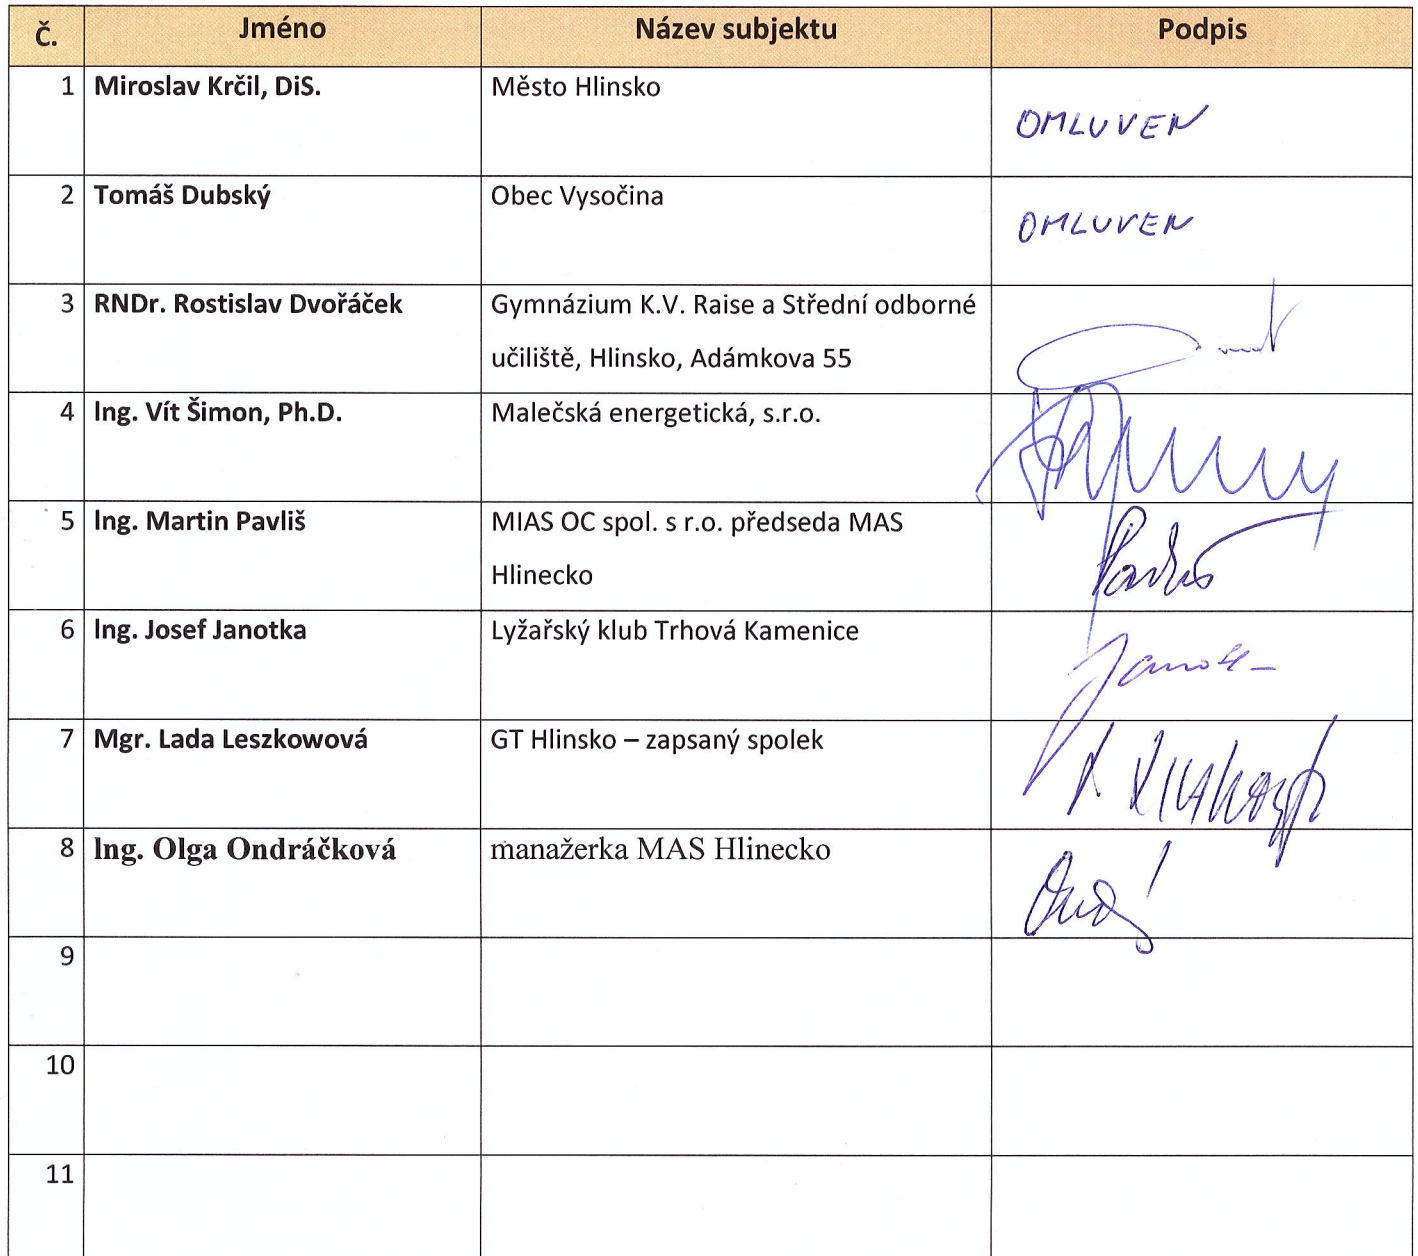 Č. Jméno Název subjektu Podpis
1 Miroslav Krčil, DiS. Město Hlinsko OMLUVEN
2 Tomáš Dubský Obec Vysočina OMLUVEN
3 RNDr. Rostislav Dvořáček Gymnázium K.V. Raise a Střední odborné
učiliště, Hlinsko, Adámkova 55
4 Ing. Vít Šimon, Ph.D. Malečská energetická, s.r.o.
5 Ing. Martin Pavliš MIAS OC spol. s r.o. předseda MAS
Hlinecko
6 Ing. Josef Janotka Lyžařský klub Trhová Kamenice
7 Mgr. Lada Leszkowová GT Hlinsko – zapsaný spolek
8 Ing. Olga Ondráčková manažerka MAS Hlinecko
9
10
11